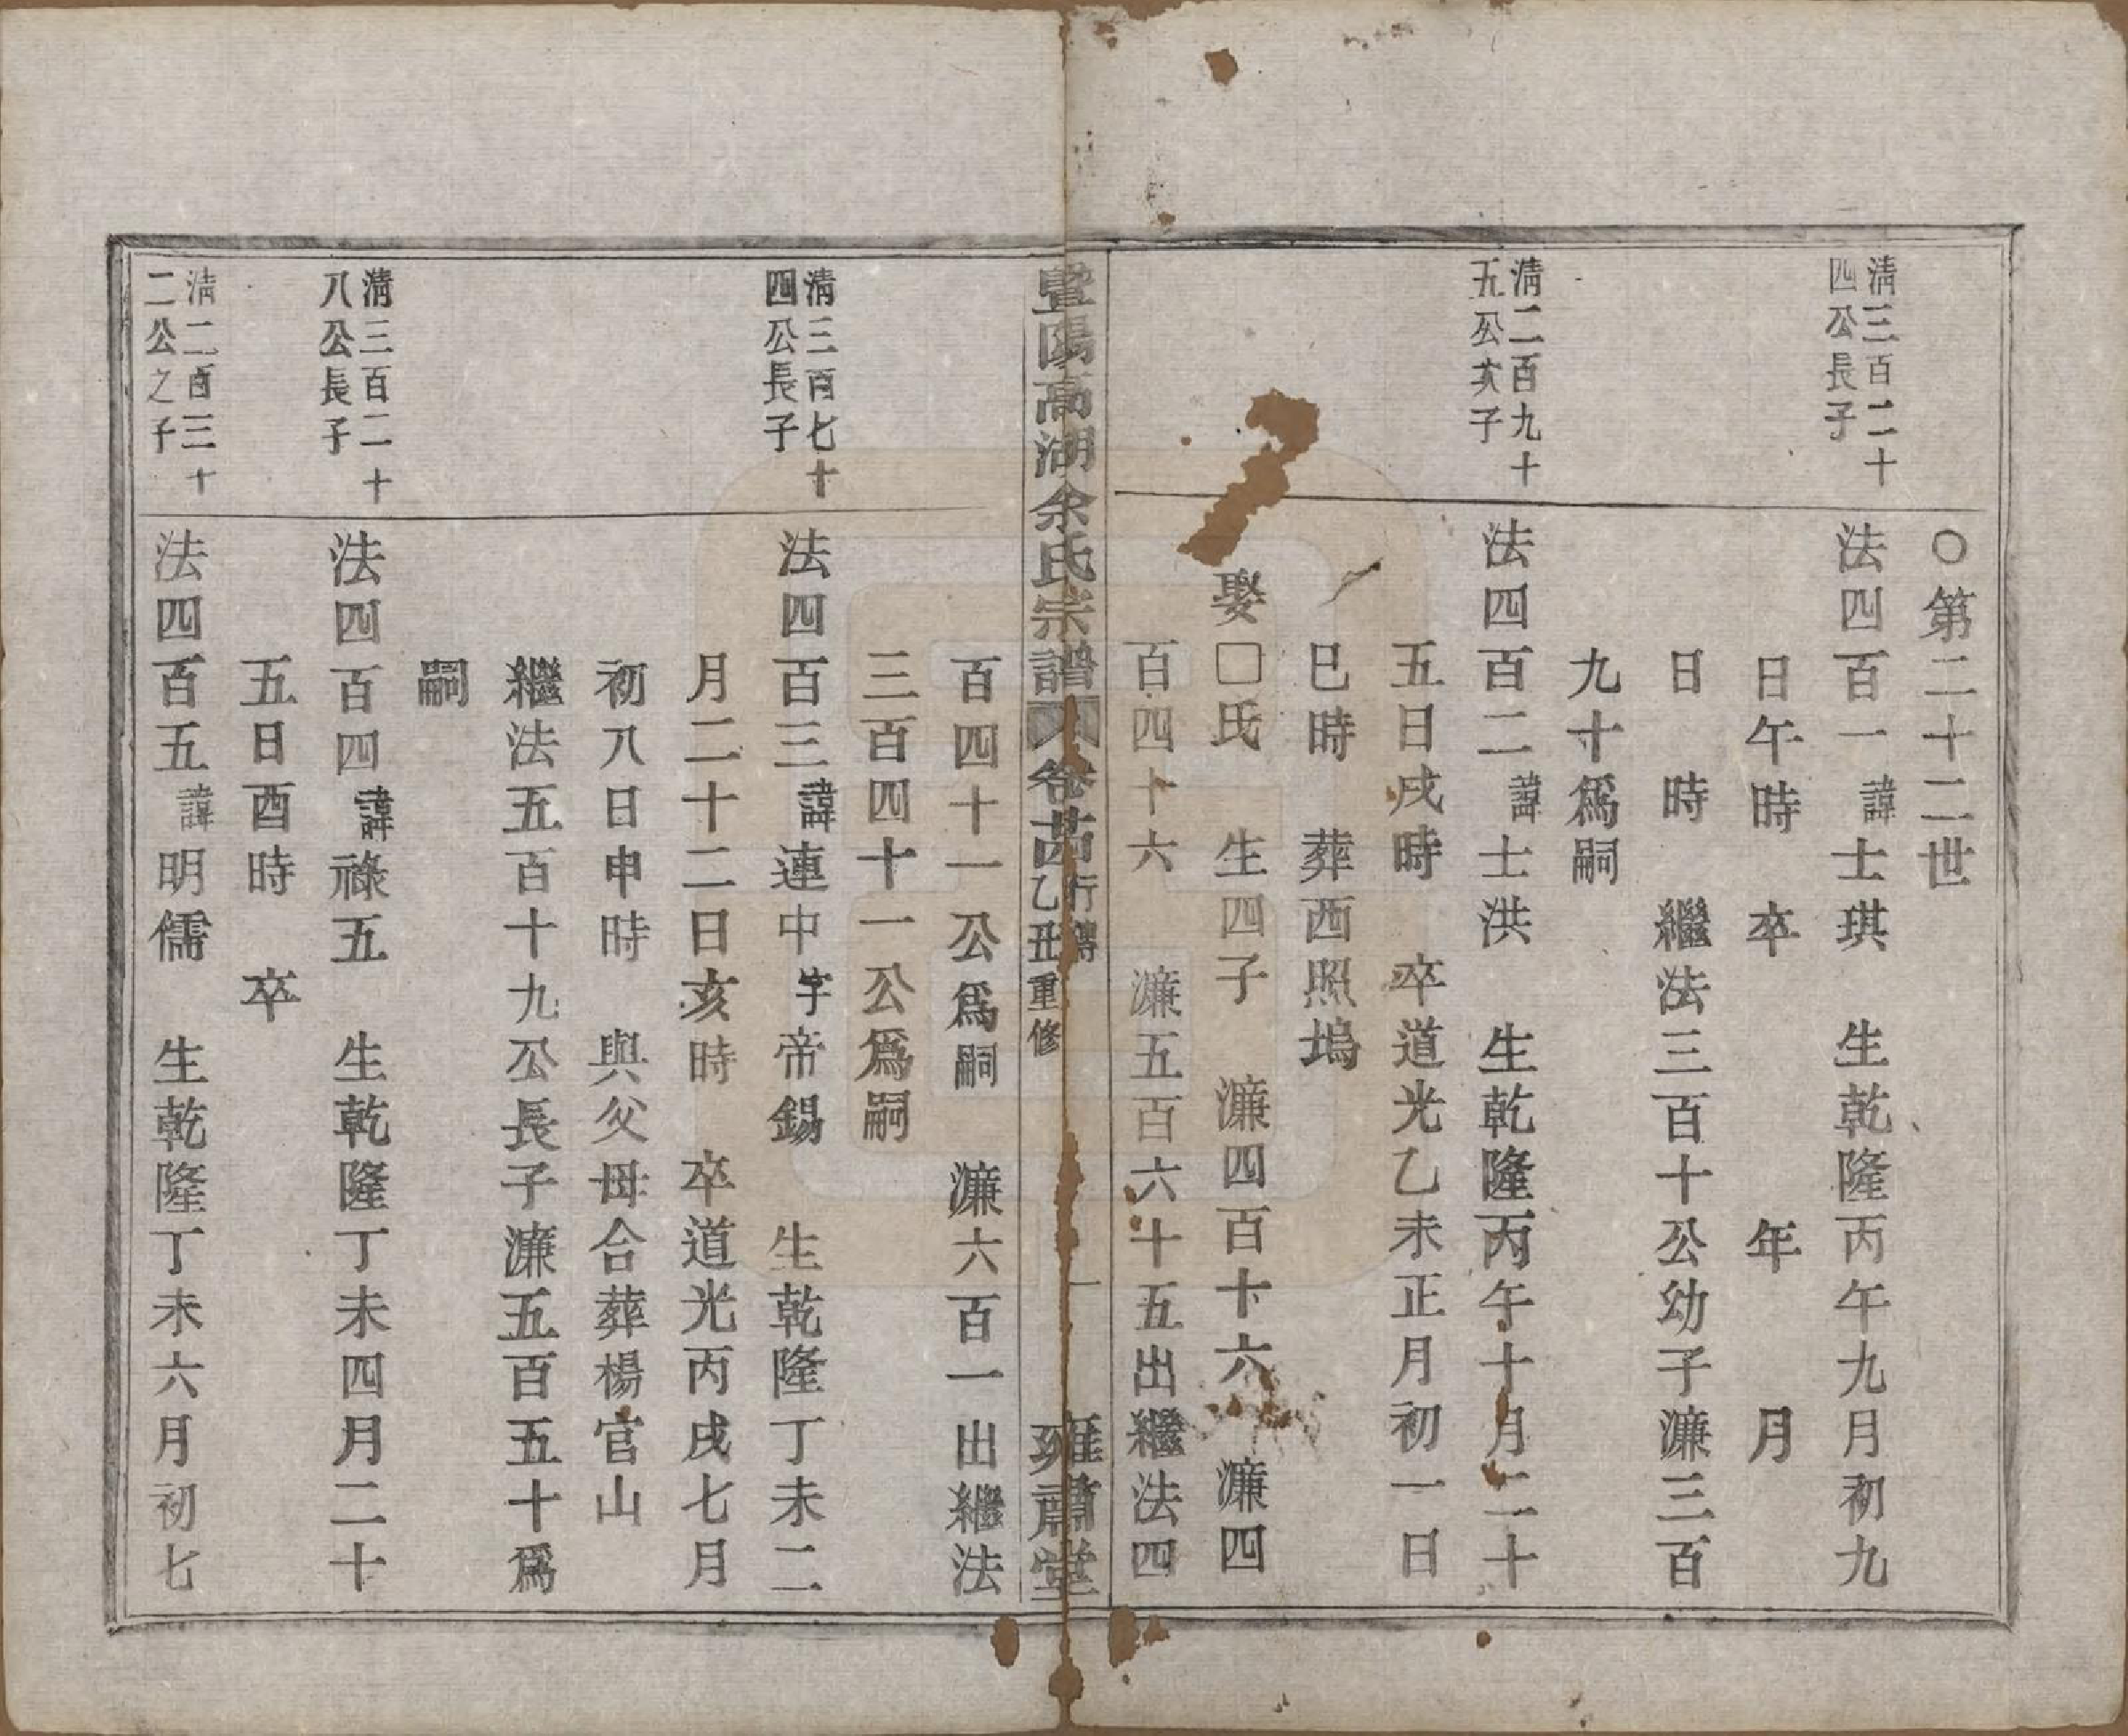 ○第二十二世
清三百二十
四公長子
法四百一諱士琪　生乾隆丙午九月初九
日午時　卒　年　月
日　時　繼法三百十公幼子濂三百
九十爲嗣
清二百九十
五公亥子
法四百二諱士洪　生乾隆丙午十月二十
五日戌時　卒道光乙未正月初一日
巳時　葬西照塢
娶□氏　生四子　濂四百十六　濂四
百四十六　濂五百六十五出繼法四
暨陽高湖余氏宗譜
卷
行傳
乙丑重修
一
雍肅堂
百四十一公爲嗣　濂六百一出繼法
三百四十一公爲嗣
清三百七十
四公長子
法四百三諱連中字帝錫　生乾隆丁未二
月二十二日亥時　卒道光丙戌七月
初八日申時　與父母合葬楊官山
繼法五百十九公長子濂五百五十爲
嗣
清三百二十
八公長子
法四百四諱祿五　生乾隆丁未四月二十
五日酉時　卒
清二百三十
二公之子
法四百五諱明儒　生乾隆丁未六月初七